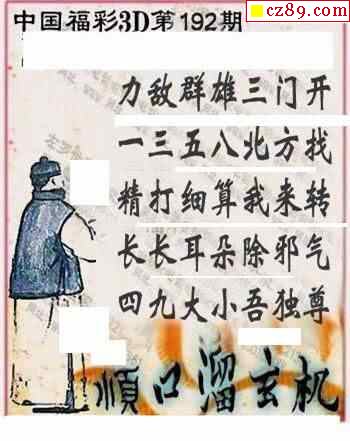 cz89.com
中国福彩3D第192期
力敌群雄三门开
一三五八北方找
精打细算我来转
长长耳朵除邪气
四九大小吾独尊
順口溜玄机